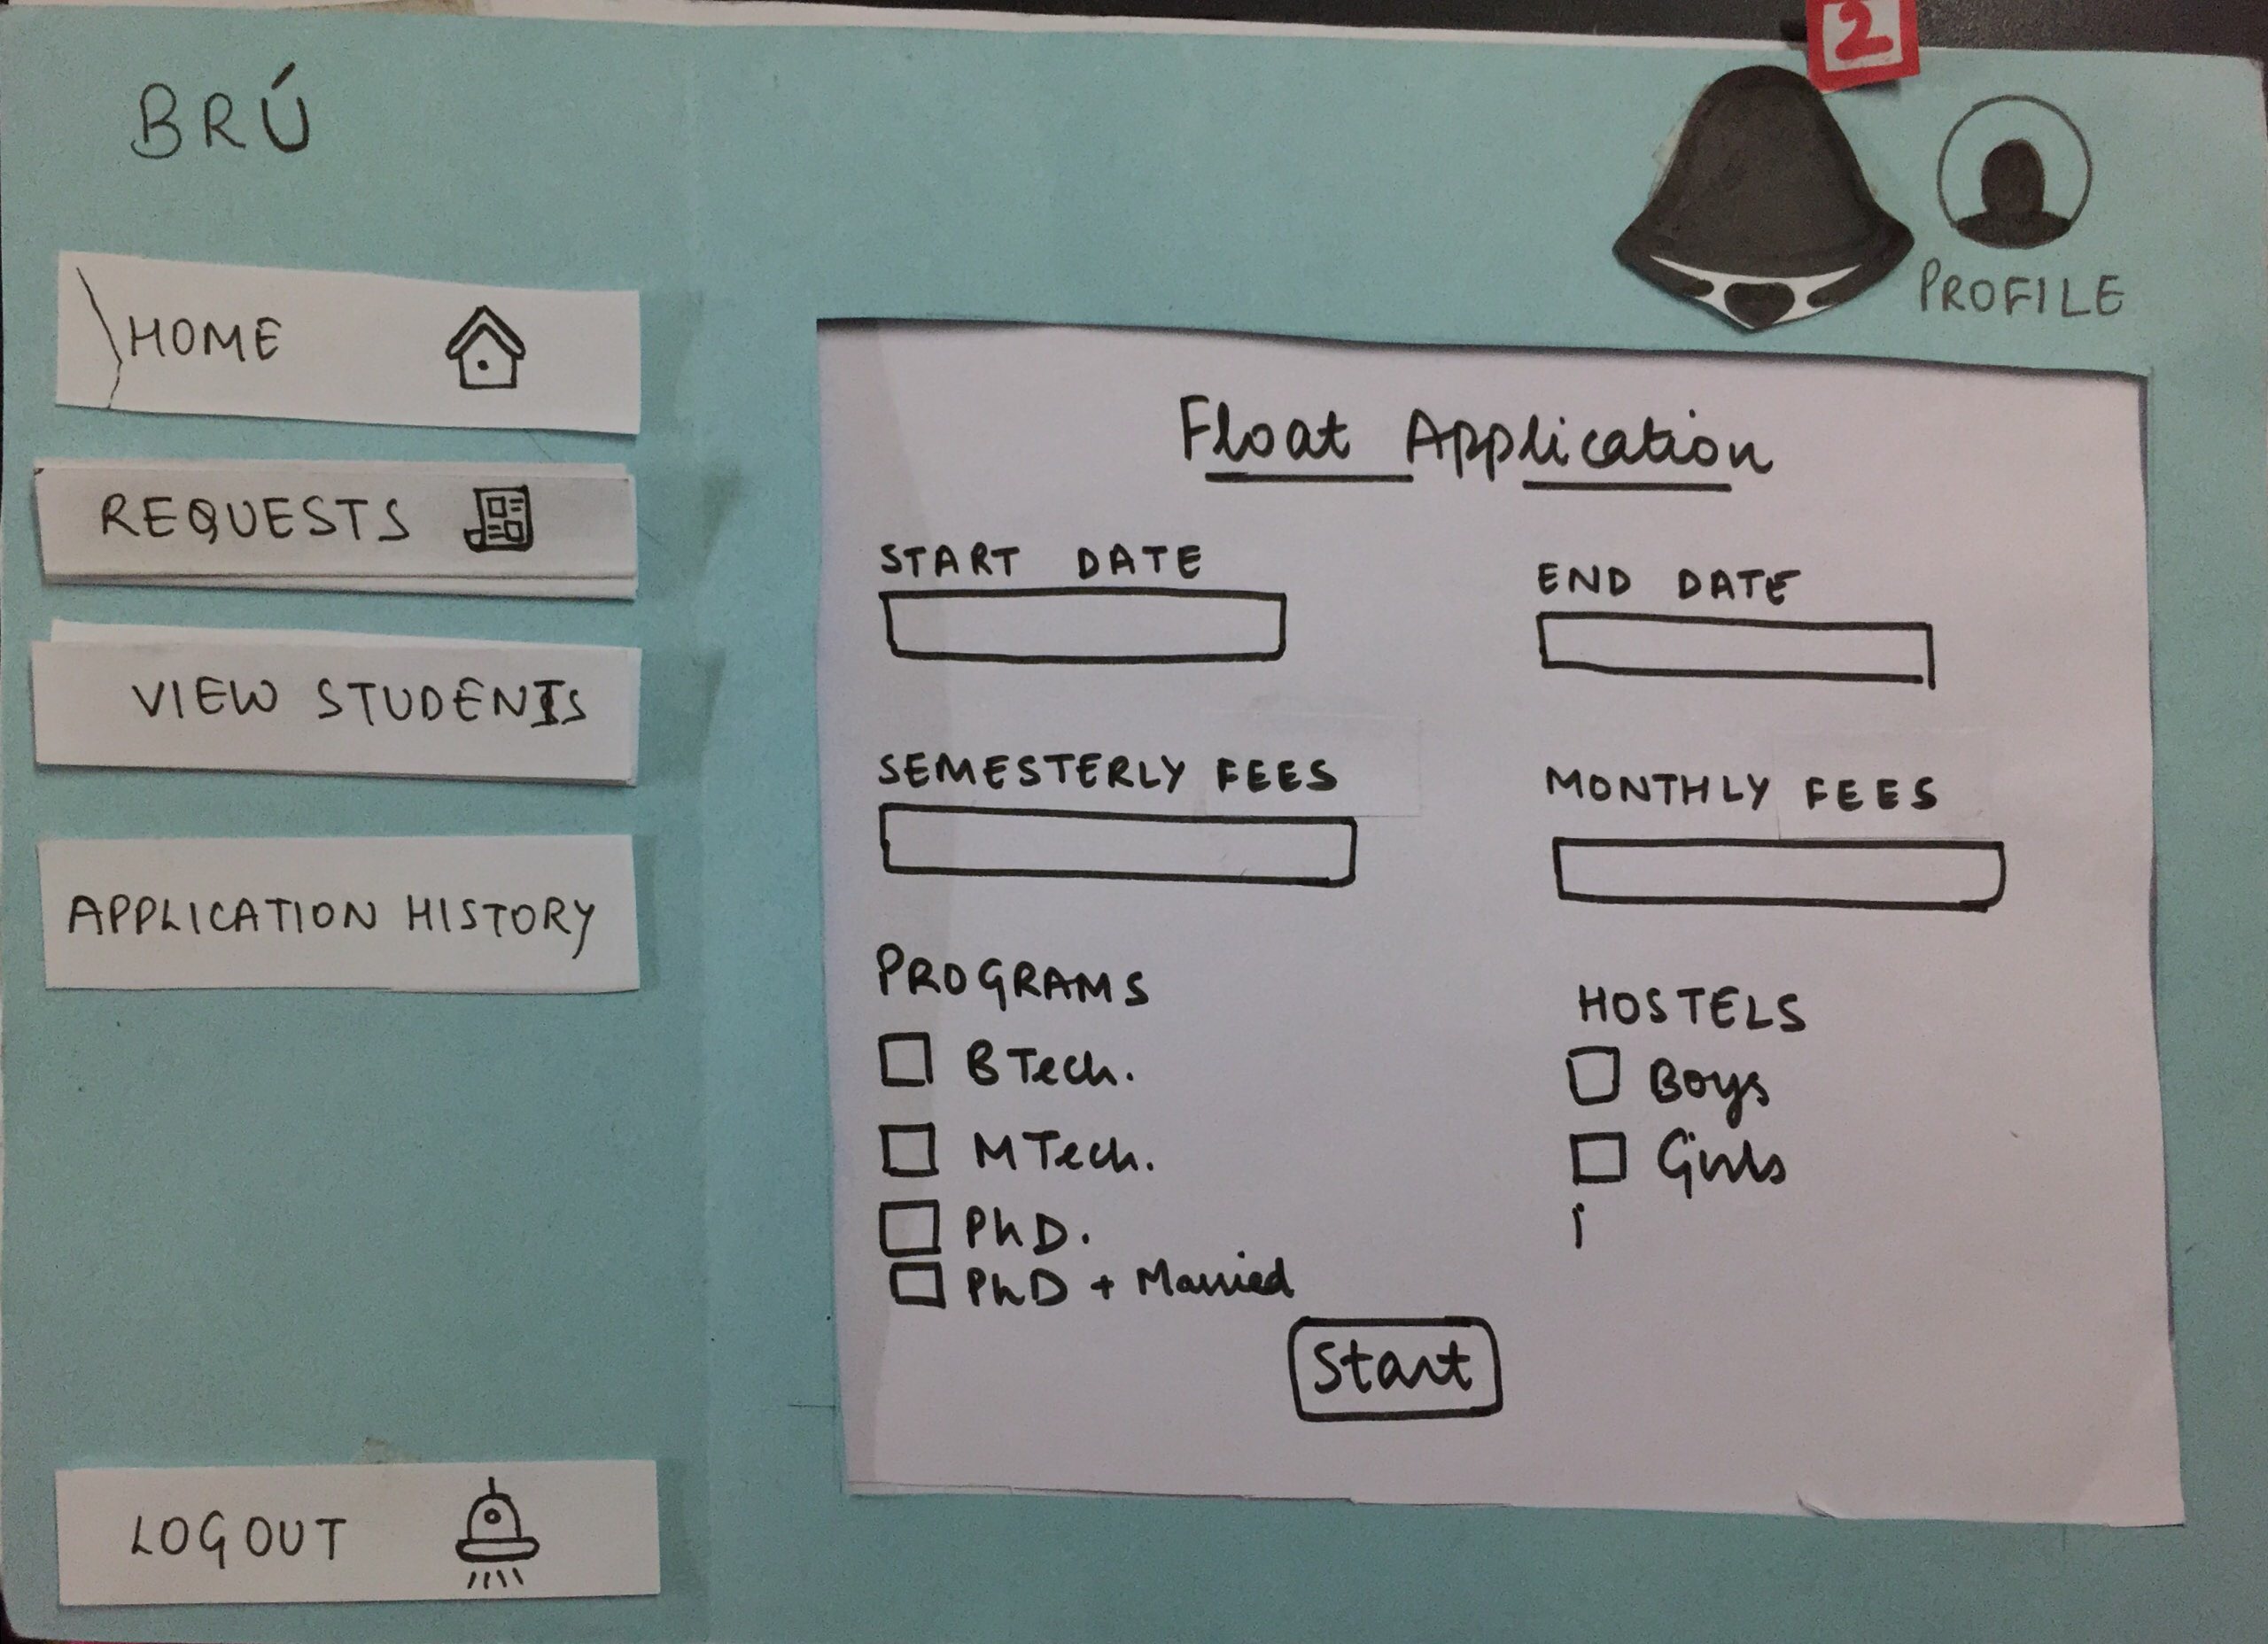 BRÚ
2
PROFILE
HOME
REQUESTS
VIEW STUDENTS
APPLICATION HISTORY
LOGOUT
Float Application
START DATE
END DATE
SEMESTERLY FEES
MONTHLY FEES
PROGRAMS
BTech.
MTech.
PhD.
PhD + Married
HOSTELS
Boys
Girls
Start